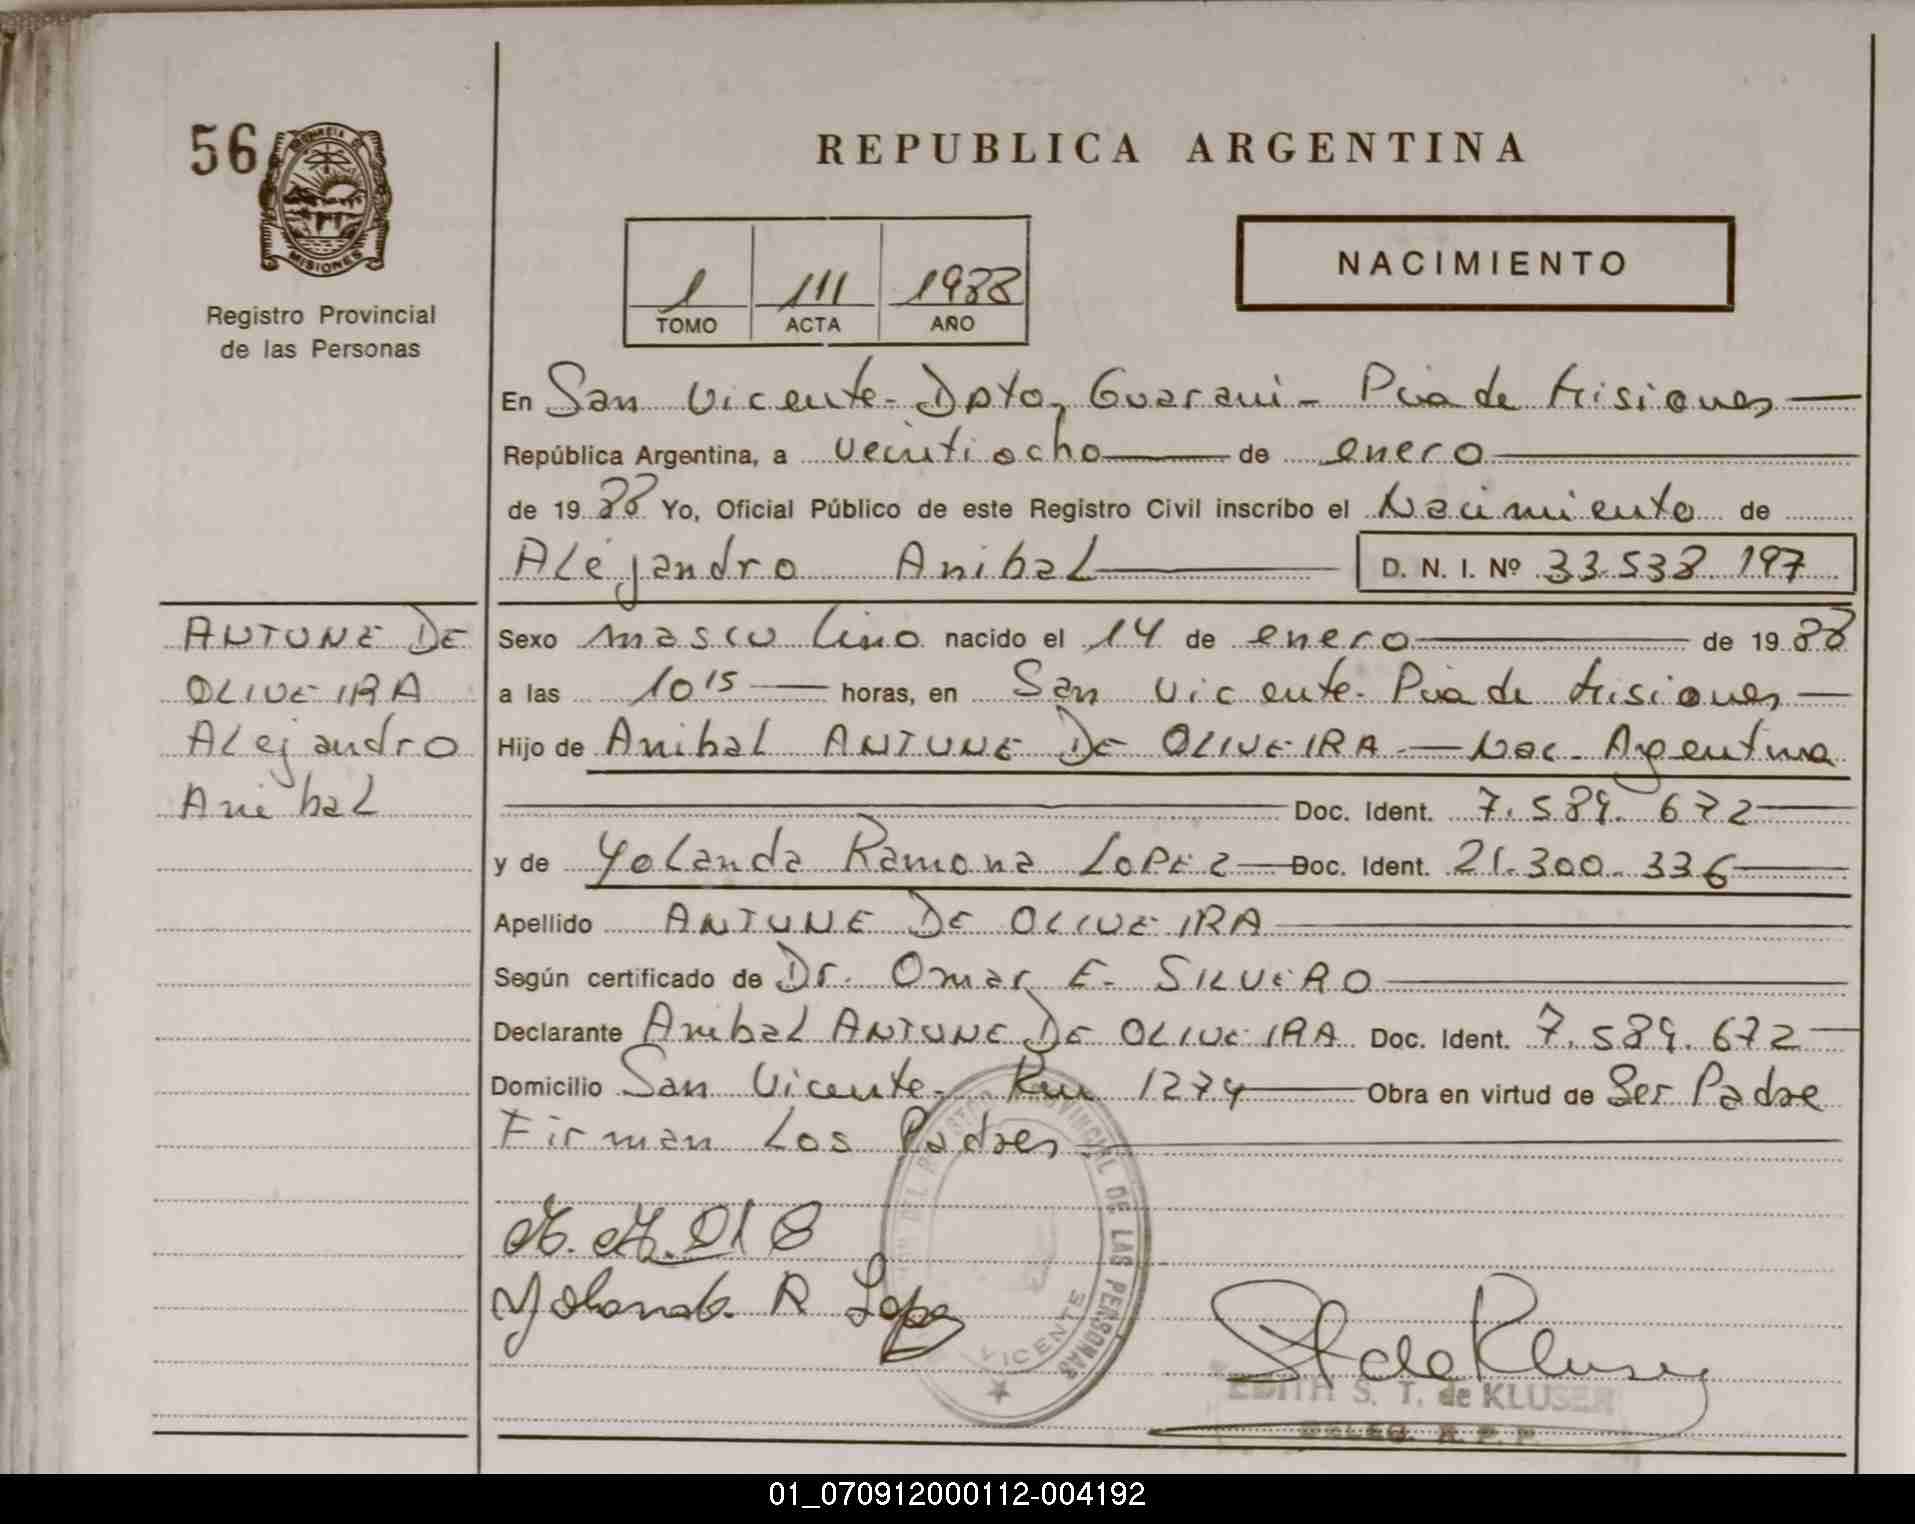 56
MISIONES
Registro Provincial
de las Personas
REPUBLICA ARGENTINA
1 111 1988
TOMO ACTA AÑO
NACIMIENTO
En San Vicente - Dpto, Guarani - Pcia de Misiones
República Argentina, a veintiocho de enero
de 1988 Yo, Oficial Público de este Registro Civil inscribo el Nacimiento de
Alejandro Anibal D. N. I. Nº 33.538.197
ANTUNE DE
OLIVEIRA
Alejandro
Anibal
Sexo masculino nacido el 14 de enero de 1988
a las 10 15 horas, en San Vicente - Pcia de Misiones
Hijo de Anibal ANTUNE DE OLIVEIRA - Nac. Argentina
Doc. Ident. 7.589.672
y de Yolanda Ramona LOPEZ Doc. Ident. 21.300.336
Apellido ANTUNE DE OLIVEIRA
Según certificado de Dr. Omar E. SILVERO
Declarante Anibal ANTUNE DE OLIVEIRA Doc. Ident. 7.589.672
Domicilio San Vicente - Km 1274 Obra en virtud de Ser Padre
Firman Los Padres
Yolanda R Lopez
PROVINCIAL DE LAS PERSONAS
VICENTE
St de Kluser
EDITH S. T. de KLUSER
DELEG. R. P. P.
01_070912000112-004192